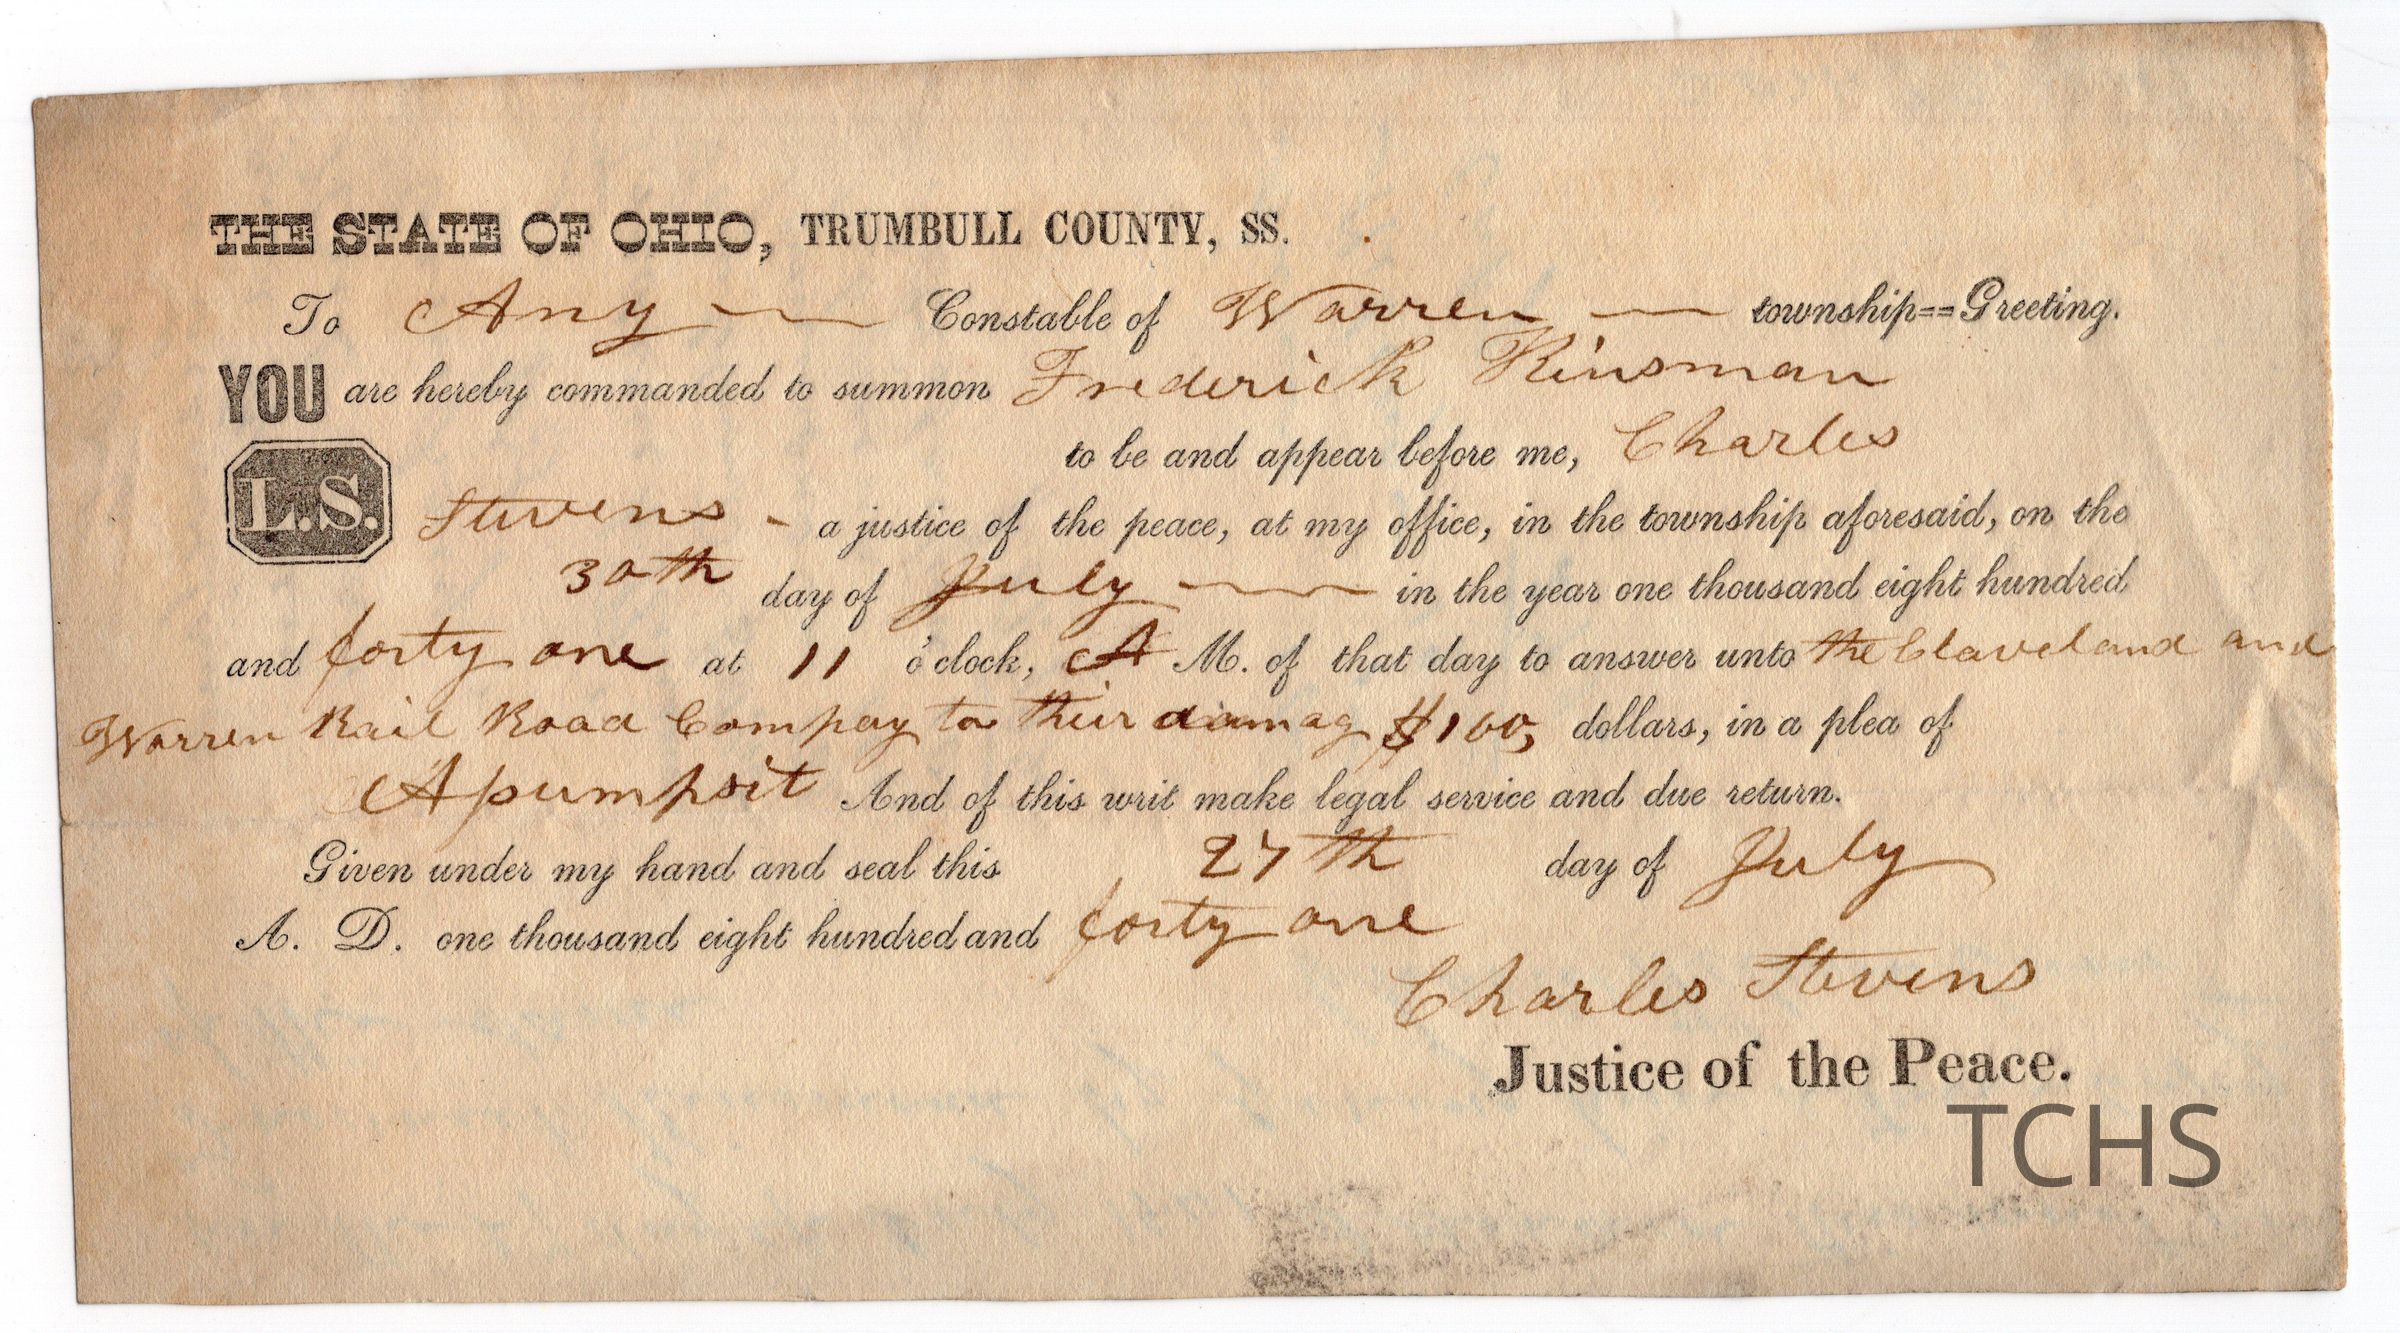 THE STATE OF OHIO, TRUMBULL COUNTY, SS.
To Any Constable of Warren township==Greeting.
YOU are hereby commanded to summon Frederick Kinsman
to be and appear before me, Charles
L.S. Stevens - a justice of the peace, at my office, in the township aforesaid, on the
30th day of July in the year one thousand eight hundred
and forty one at 11 o'clock, A M. of that day to answer unto the Claveland and
Warren Rail Road Compay to their damag $100, dollars, in a plea of
Apumpsit And of this writ make legal service and due return.
Given under my hand and seal this 27th day of July
A. D. one thousand eight hundred and forty one
Charles Stevens
Justice of the Peace.
TCHS